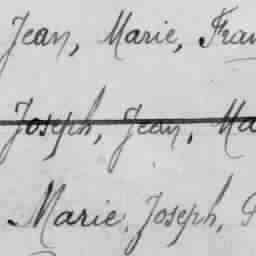 Jean, Marie, Fran
Joseph, Jean, Ma
Marie, Joseph,